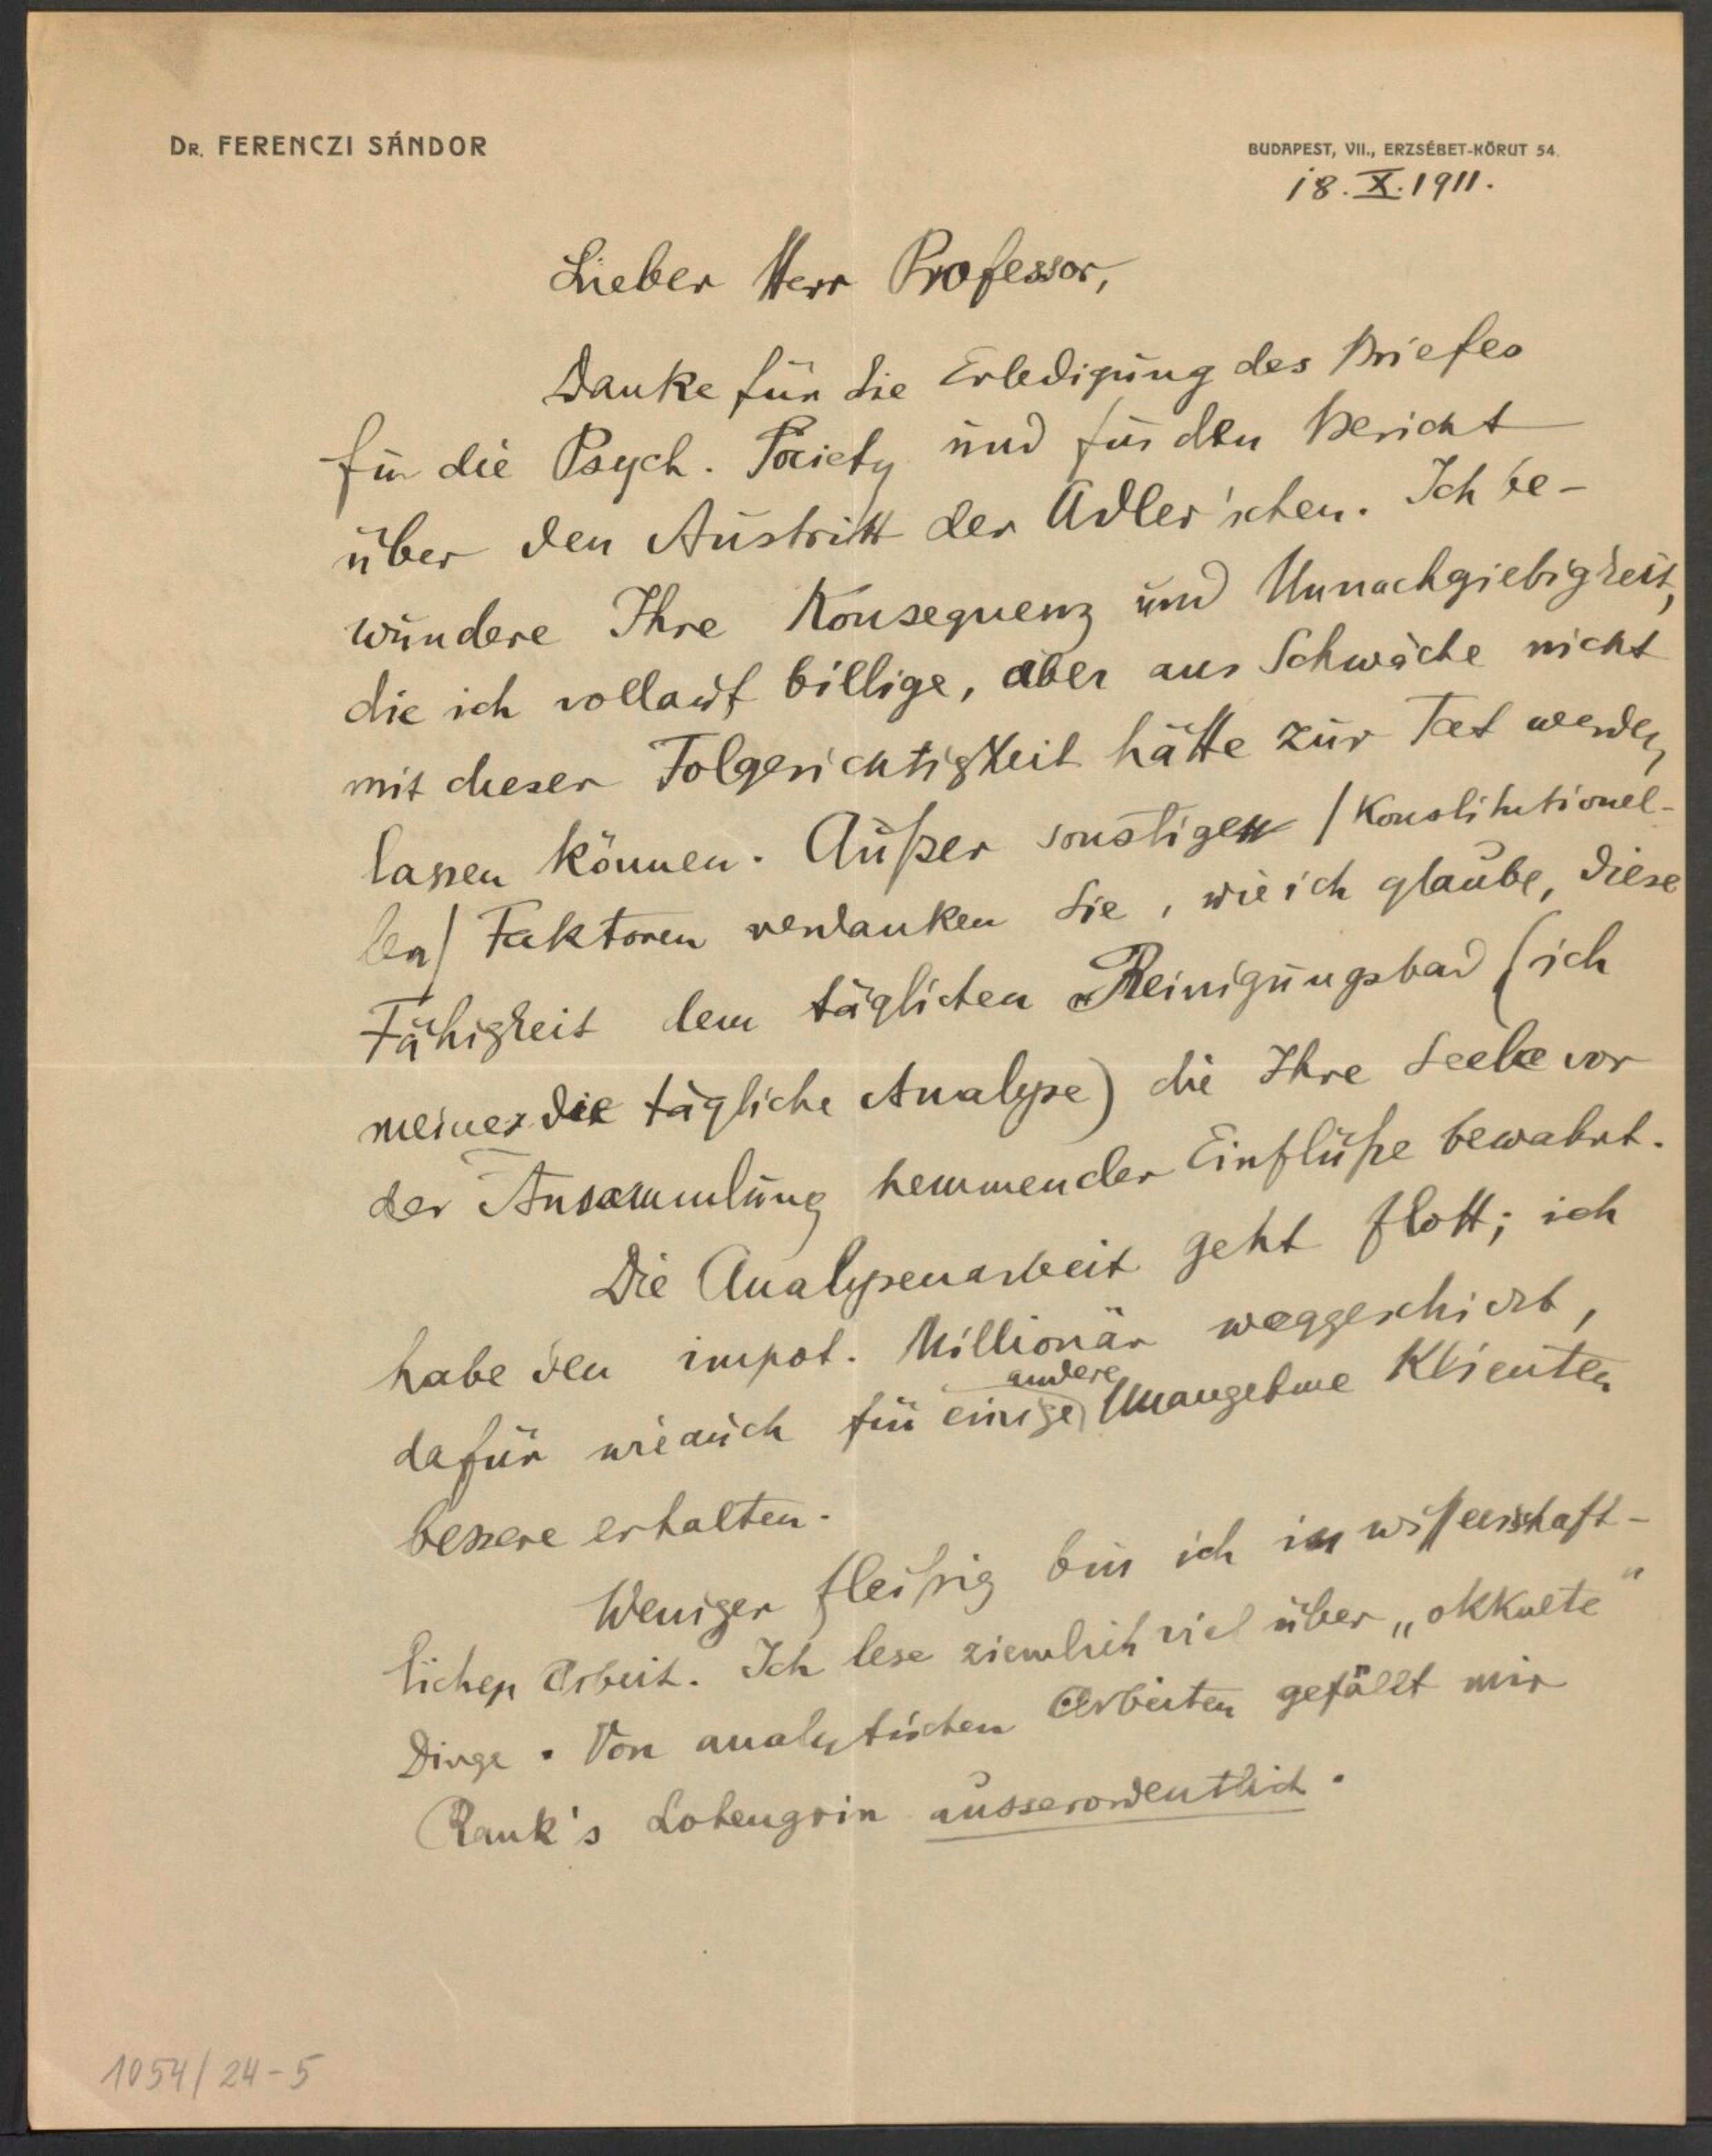 DR. FERENCZI SÁNDOR
BUDAPEST, VII., ERZSÉBET-KÖRUT 54.
18. X. 1911.
Lieber Herr Professor,
Danke für die Erledigung des Briefes
für die Psych. Society und für den Bericht
über den Austritt der Adler'schen. Ich be-
wundere Ihre Konsequenz und Unnachgiebigkeit,
die ich vollauf billige, aber aus Schwäche nicht
mit dieser Folgerichtigkeit hätte zur Tat werden
lassen können. Außer sonstigen /Konstitutionel-
len/ Faktoren verdanken Sie, wie ich glaube, diese
Fähigkeit dem täglichen Reinigungsbad (ich
meine die tägliche Analyse) die Ihre Seele vor
der Ansammlung hemmender Einflüße bewahrt.
Die Analysenarbeit geht flott; ich
habe den impot. Millionär weggeschickt,
andere
dafür wie auch für einige Unangehme Klienten
bessere erhalten.
Weniger fleißig bin ich in wissenschaft-
licher Arbeit. Ich lese ziemlich viel über „okkulte"
Dinge. Von analytischen Arbeiten gefällt mir
Rank's Lohengrin ausserordentlich.
1054/24-5